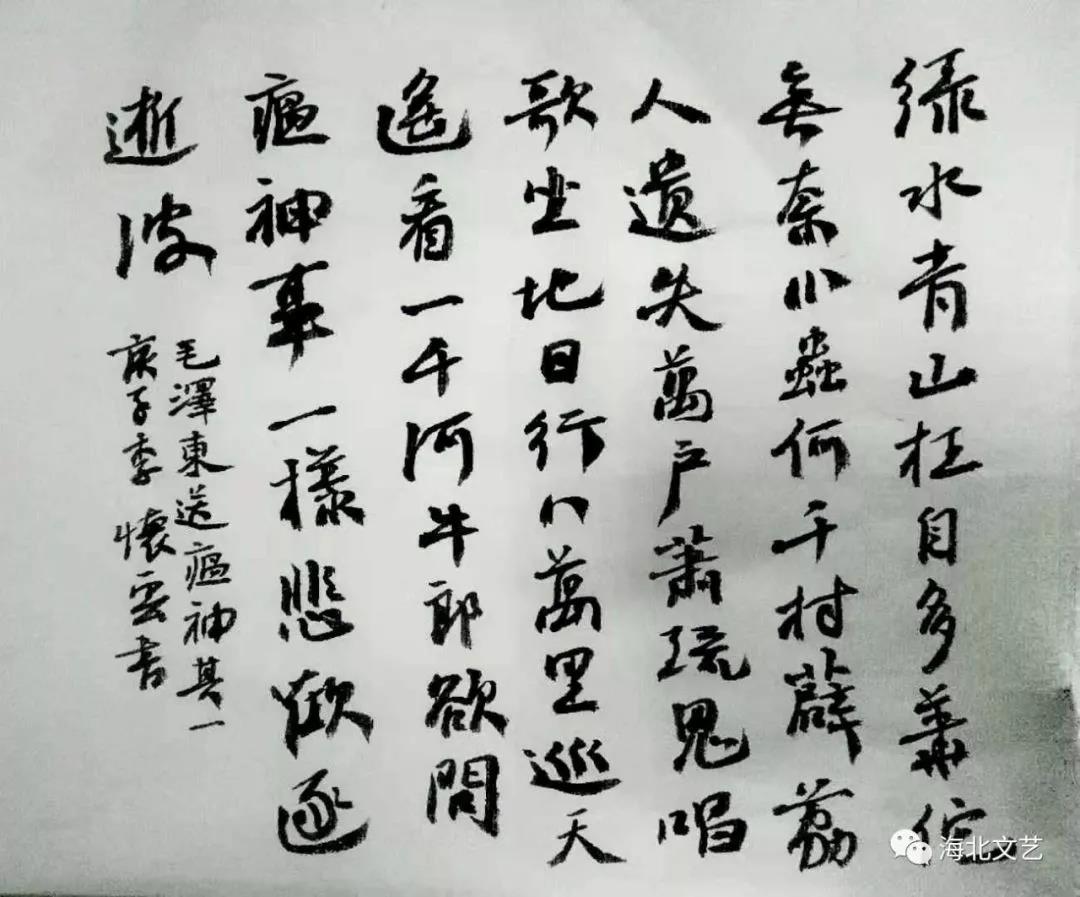 绿水青山枉自多華佗
無奈小蟲何千村薜荔
人遺失萬戶蕭疏鬼唱
歌坐地日行八萬里巡天
遙看一千河牛郎欲問
瘟神事一樣悲歡逐
逝波
毛澤東送瘟神其一
庚子季 懷雲書
海北文艺